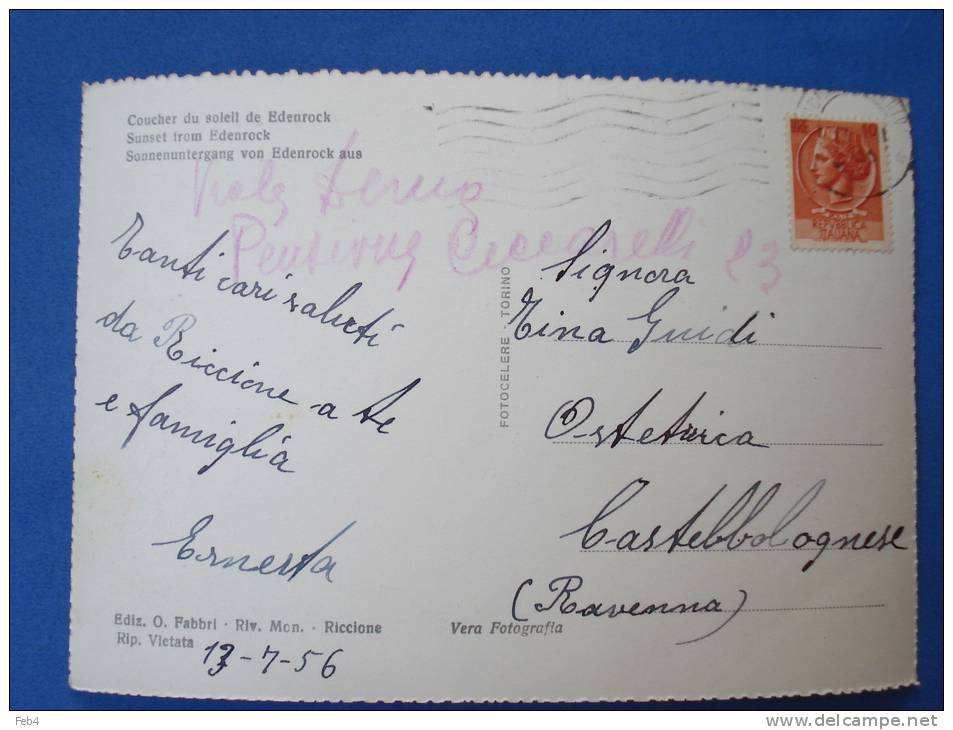 Coucher du soleil de Edenrock
Sunset from Edenrock
Sonnenuntergang von Edenrock aus
Pensione Ceccarelli 23
Tanti cari saluti
da Riccione a te
e famiglia
Ernesta
Ediz. O. Fabbri - Riv. Mon. - Riccione
Rip. Vietata
13-7-56
Vera Fotografia
FOTOCELERE - TORINO
REPVBBLICA
ITALIANA
Signora
Tina Guidi
Ostetrica
Castelbolognese
(Ravenna)
Feb4
www.delcampe.net